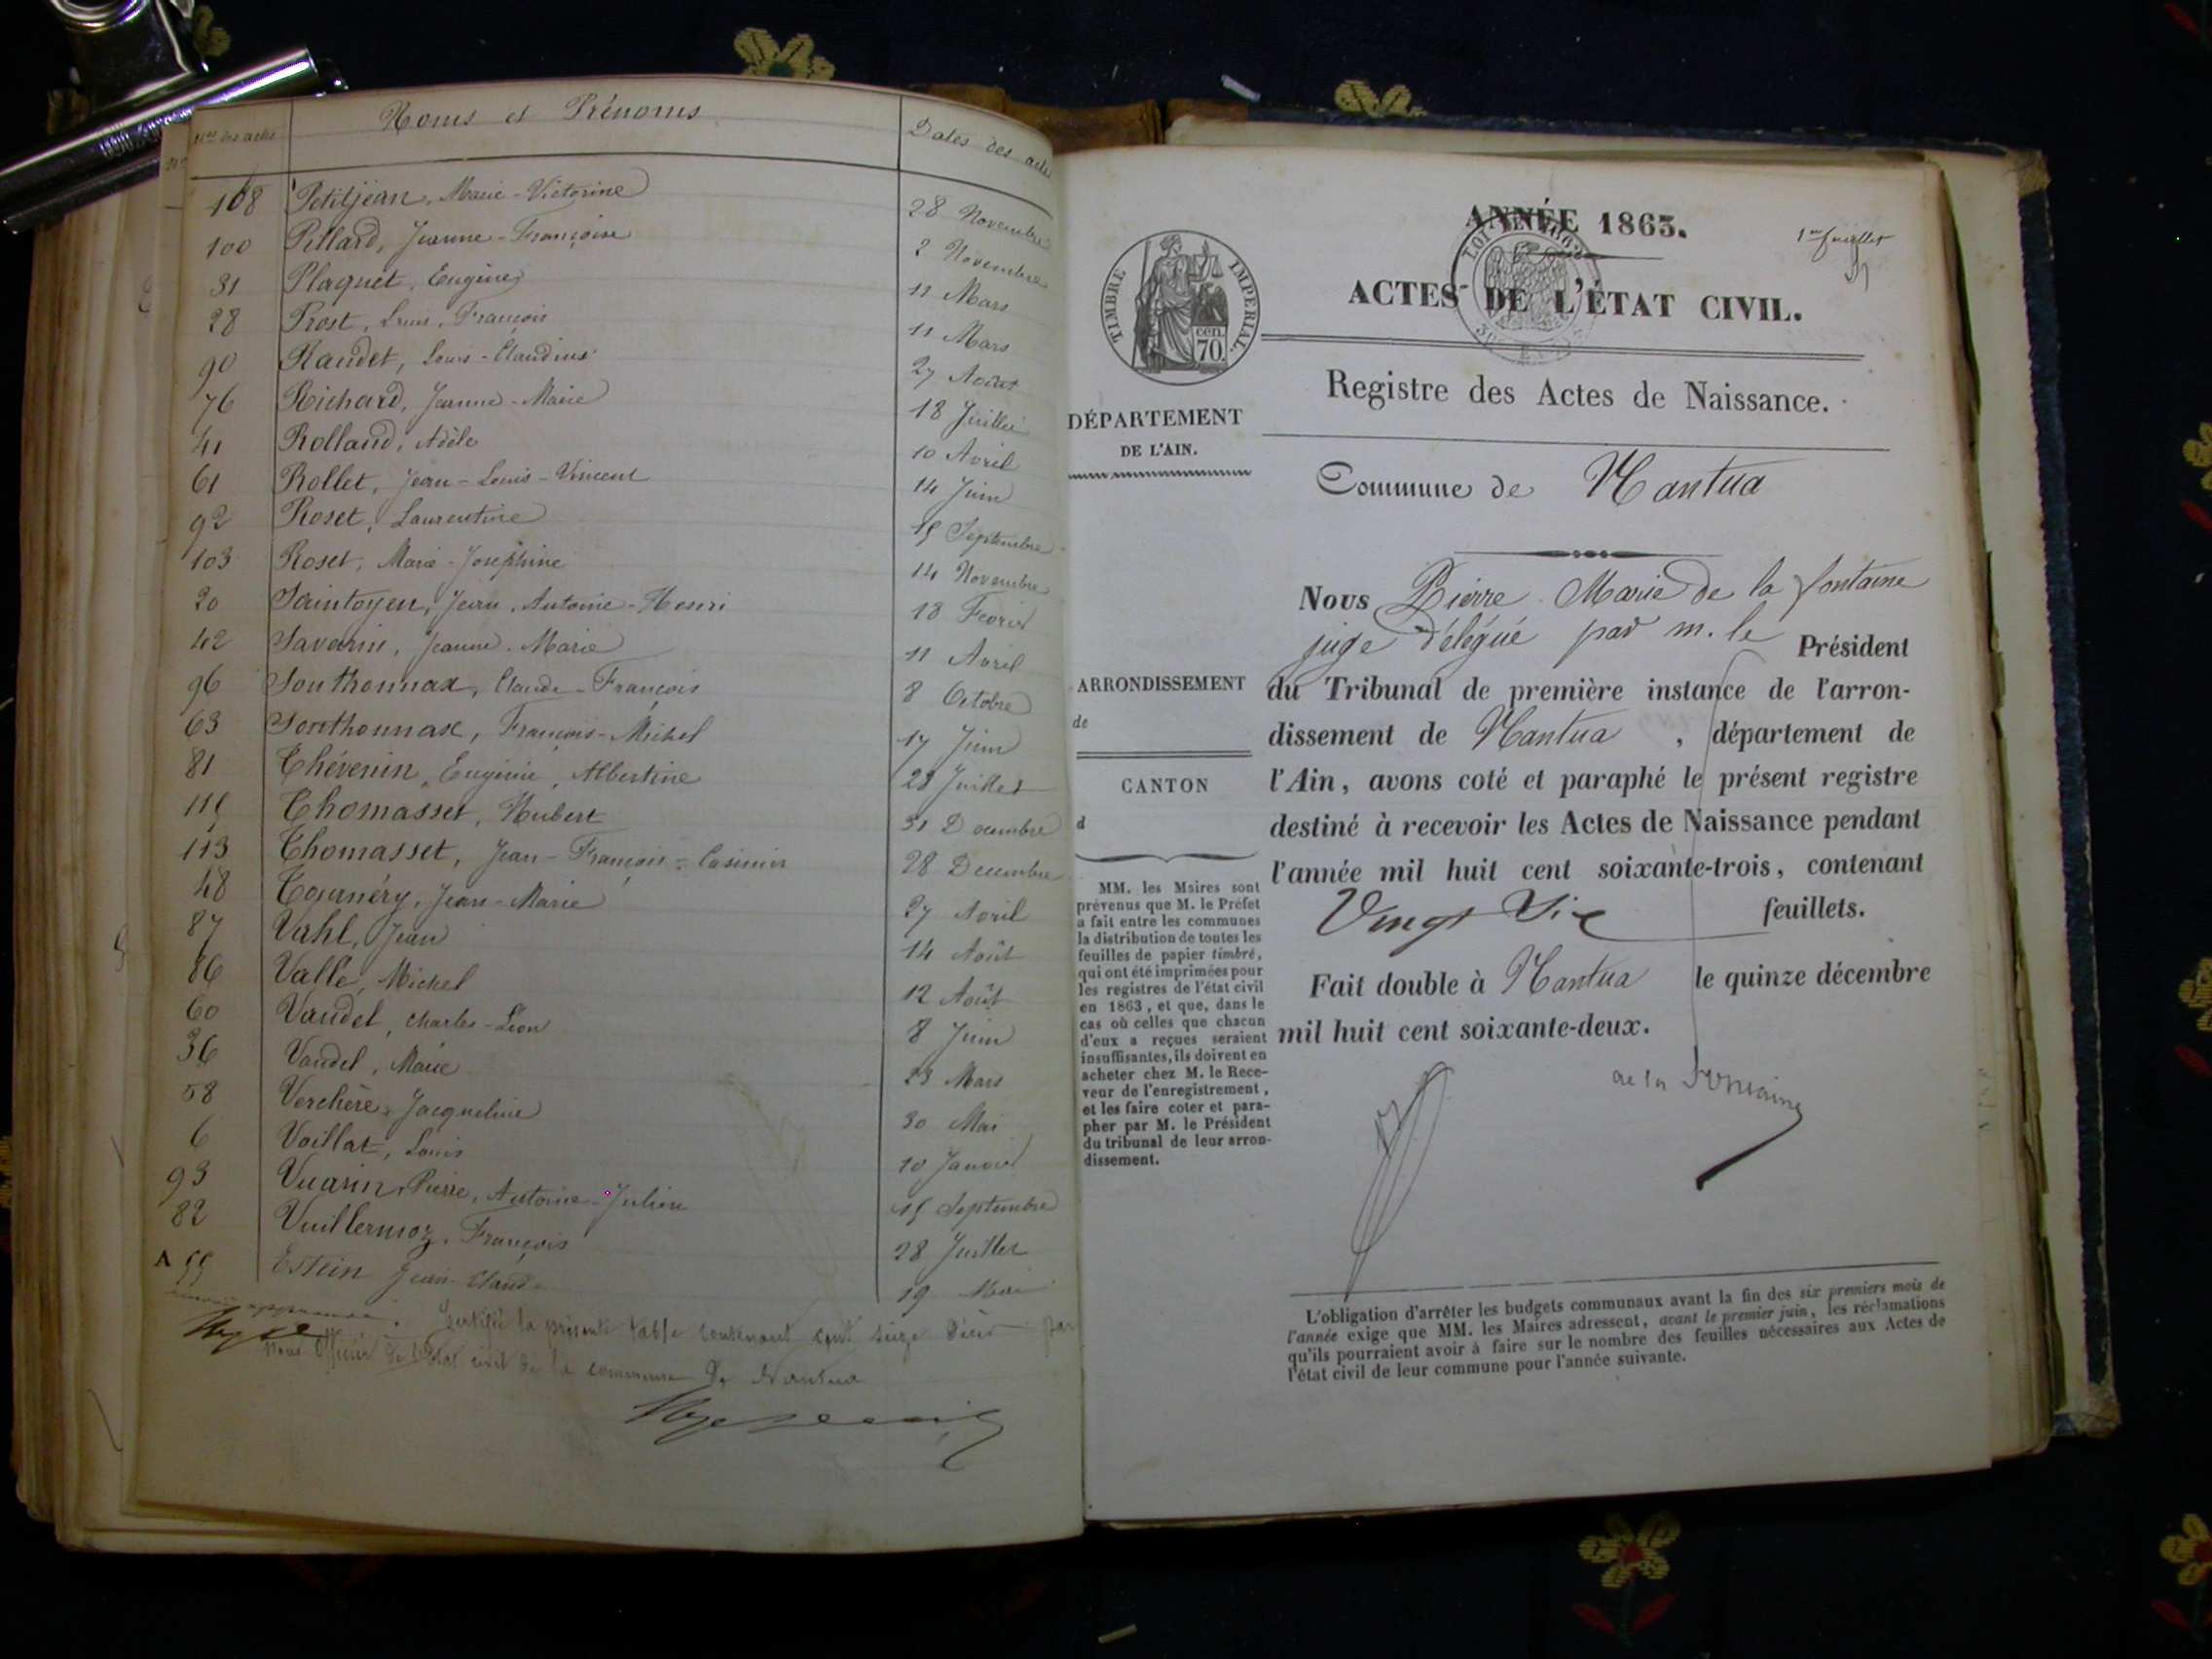 Nos des actes Noms et Prénoms Dates des actes
108 Petitjean, Marie-Victorine 28 Novembre
100 Pillard, Jeanne-Françoise 2 Novembre
31 Plaquet, Eugène 11 Mars
28 Prost, Louis, François 11 Mars
90 Raudet, Louis-Claudius 27 Août
76 Richard, Jeanne-Marie 18 Juillet
41 Rolland, Adèle 10 Avril
61 Rollet, Jean-Louis-Vincent 14 Juin
92 Roset, Laurentine 15 Septembre
103 Roset, Marie-Josephine 14 Novembre
20 Saintoyen, Jean, Antoine-Henri 18 Fevrier
42 Savarin, Jeanne-Marie 11 Avril
96 Southonnax, Claude-François 8 Octobre
63 Sonthonnax, François-Michel 17 Juin
81 Thévenin, Eugénie, Albertine 28 Juillet
115 Thomasset, Hubert 31 Decembre
113 Thomasset, Jean-François-Casimir 28 Decembre
48 Tournéry, Jean-Marie 27 Avril
87 Vahl, Jean 14 Août
86 Valle, Michel 12 Août
60 Vaudel, Charles-Léon 8 Juin
36 Vaudel, Marie 23 Mars
58 Verchère, Jacqueline 30 Mai
6 Voillat, Louis 10 Janvier
93 Vuarin, Pierre, Antoine-Julien 15 Septembre
82 Vuillermoz, François 28 Juillet
A 55 Estein Jean-Claude 19 Mai
Certifié la présente table contenant cent seize par
Nous Officier de l'Etat civil de la commune de Nantua
ANNÉE 1863.
1er feuillet
ACTES DE L'ÉTAT CIVIL.
TIMBRE IMPERIAL.
cen.
70.
Registre des Actes de Naissance.
DÉPARTEMENT
DE L'AIN.
Commune de Nantua
Nous Pierre Marie de la fontaine
juge délégué par m. le Président
du Tribunal de première instance de l'arron-
dissement de Nantua, département de
l'Ain, avons coté et paraphé le présent registre
destiné à recevoir les Actes de Naissance pendant
l'année mil huit cent soixante-trois, contenant
Vingt Six feuillets.
Fait double à Nantua le quinze décembre
mil huit cent soixante-deux.
de la Fontaine
ARRONDISSEMENT
de
CANTON
d
MM. les Maires sont
prévenus que M. le Préfet
a fait entre les communes
la distribution de toutes les
feuilles de papier timbré,
qui ont été imprimées pour
les registres de l'état civil
en 1863, et que, dans le
cas où celles que chacun
d'eux a reçues seraient
insuffisantes, ils doivent en
acheter chez M. le Rece-
veur de l'enregistrement,
et les faire coter et para-
pher par M. le Président
du tribunal de leur arron-
dissement.
L'obligation d'arrêter les budgets communaux avant la fin des six premiers mois de
l'année exige que MM. les Maires adressent, avant le premier juin, les réclamations
qu'ils pourraient avoir à faire sur le nombre des feuilles nécessaires aux Actes de
l'état civil de leur commune pour l'année suivante.